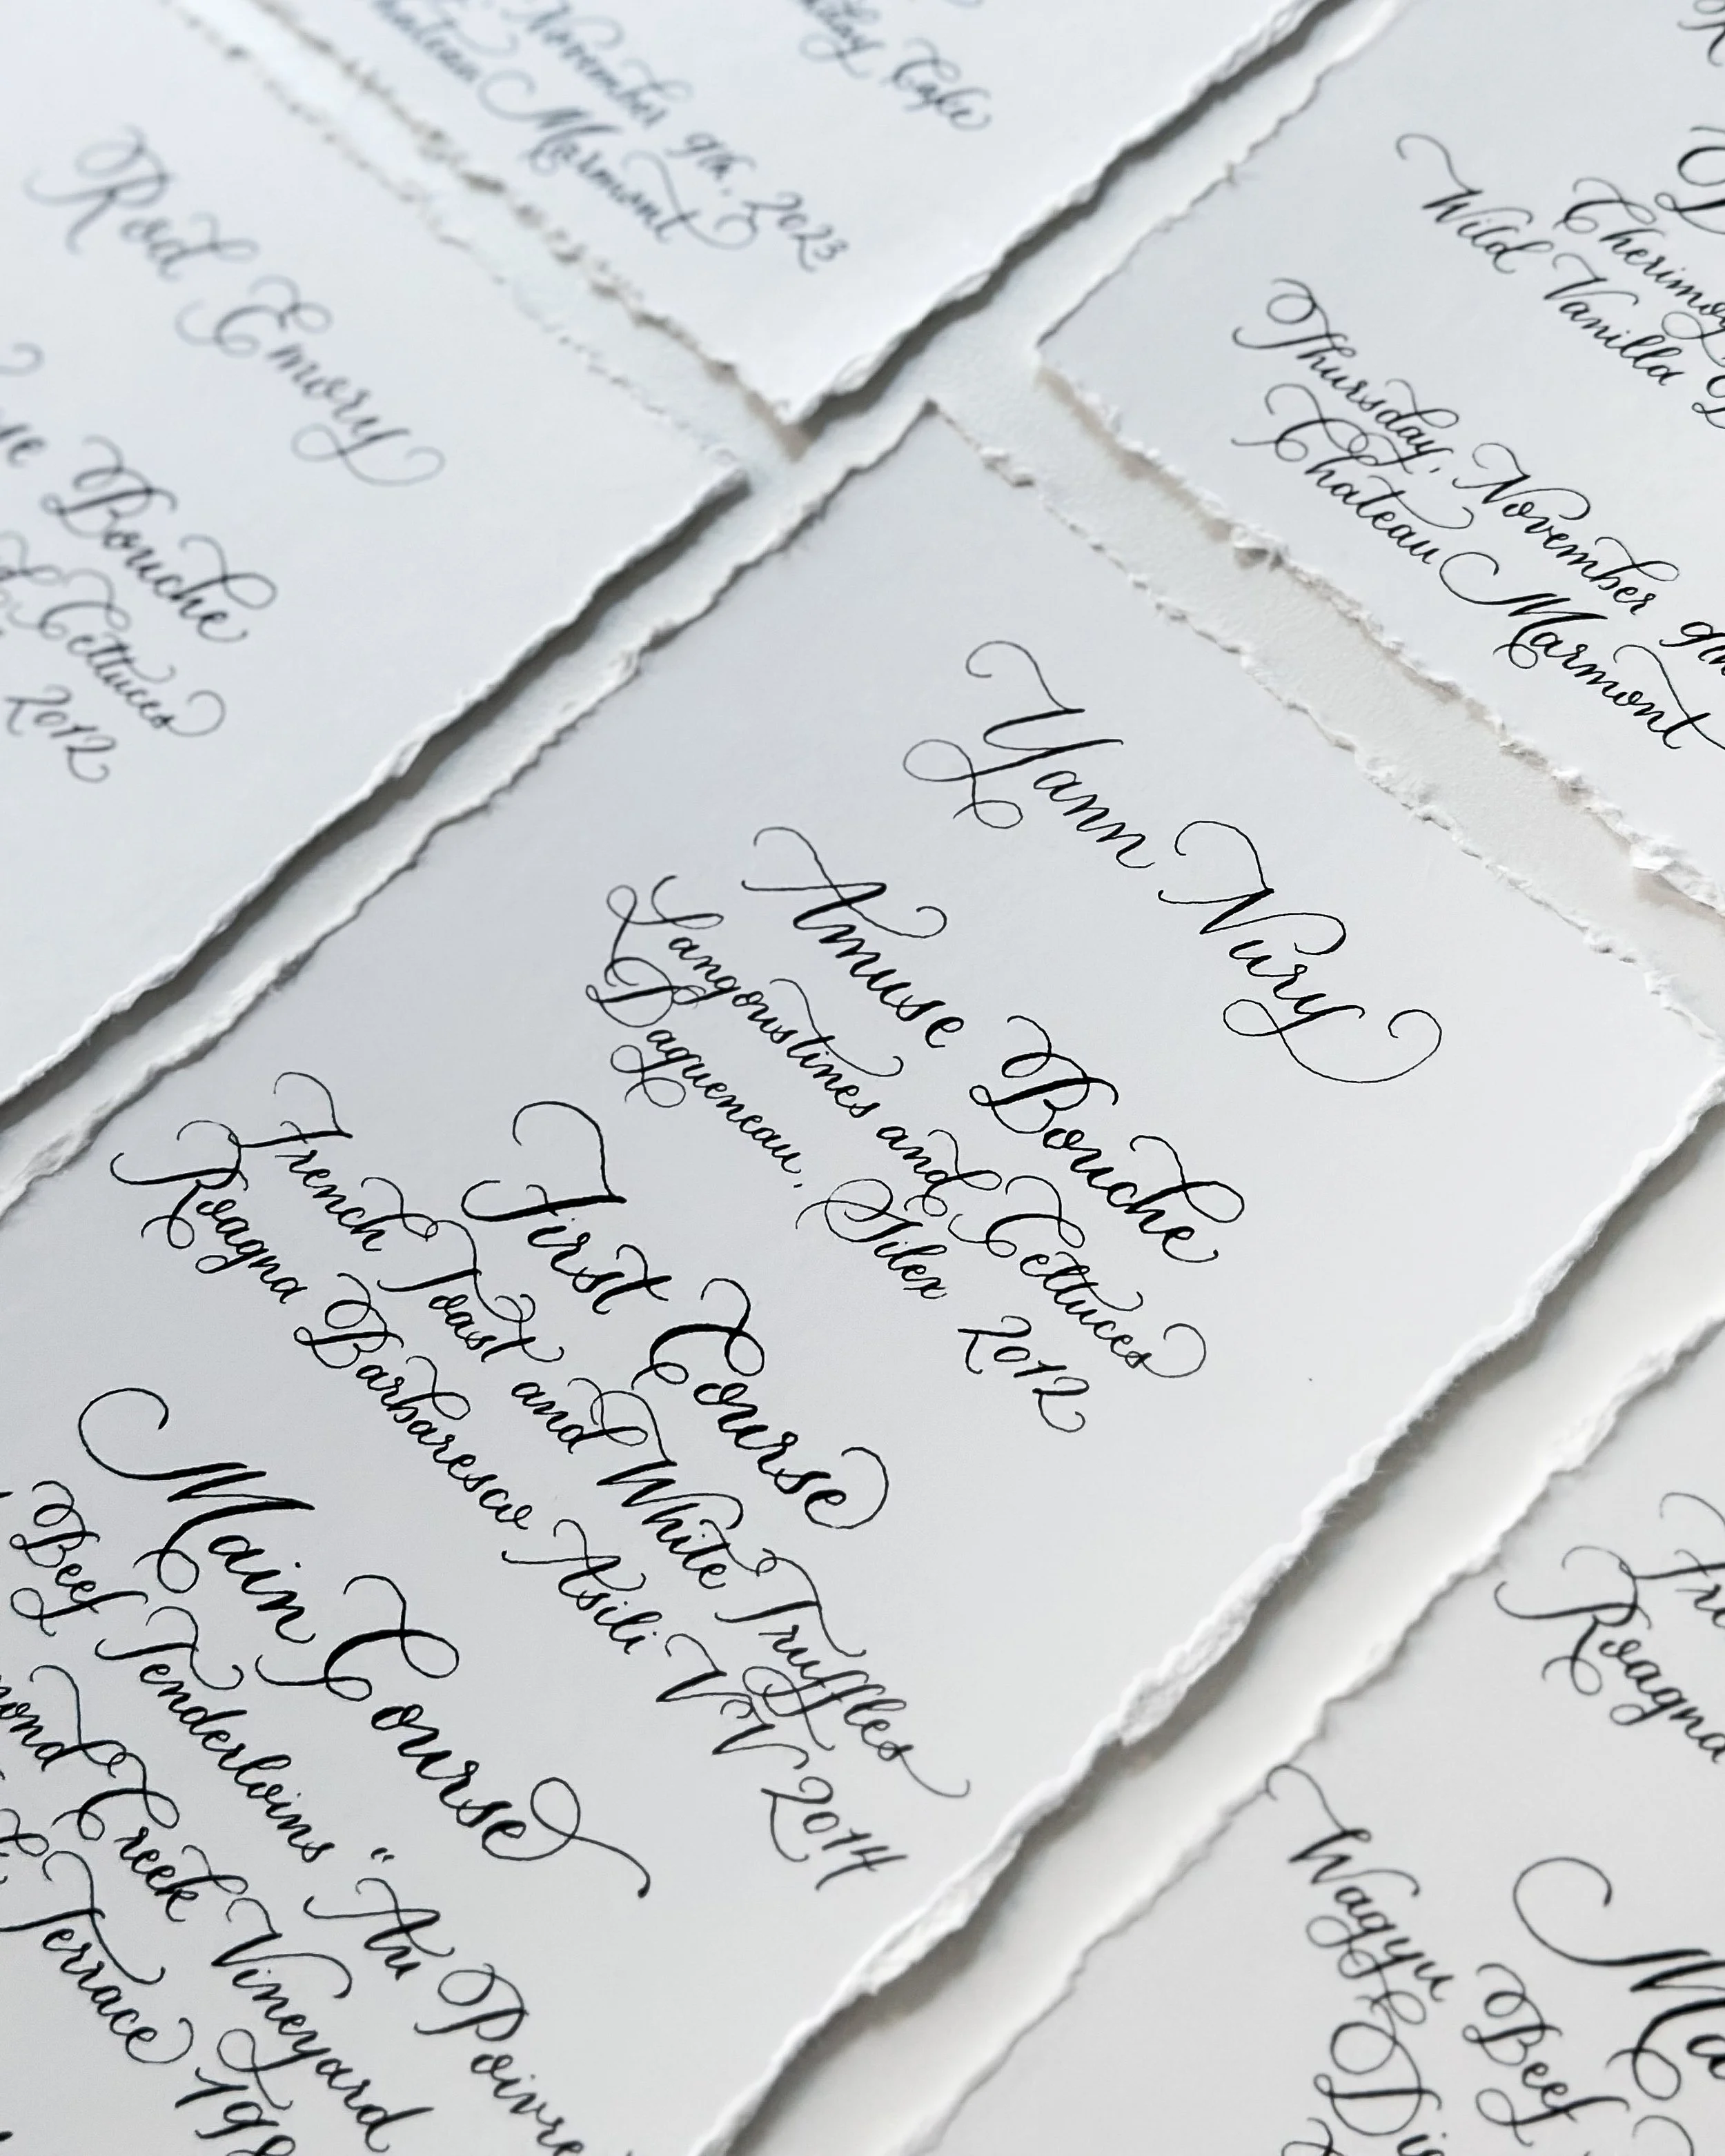 November 9th, 2023
Chateau Marmont
Cake
Rod Emory
Bouche
Lettuces
2012
Wild Vanilla
Thursday, November 9th
Chateau Marmont
Yann Nury
Amuse Bouche
Langoustines and Lettuces
Dagueneau, Silex 2012
First Course
French Toast and White Truffles
Roagna Barbaresco Asili VV 2014
Main Course
Beef Tenderloins "Au Poivre
Creek Vineyard
Terrace
Roagna
Wagyu Beef